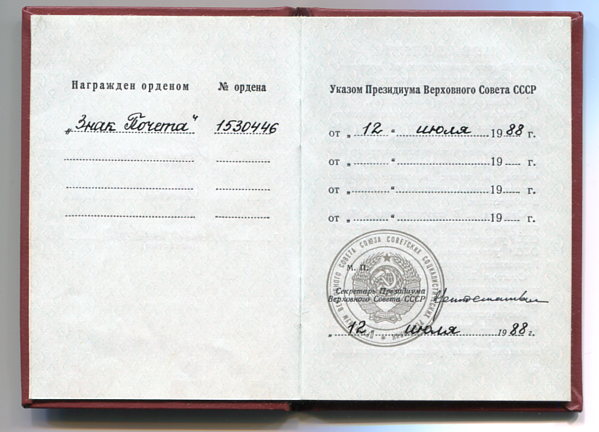 Награжден орденом № ордена
„Знак Почета“ 1530446
Указом Президиума Верховного Совета СССР
от „ 12 “ июля 1988 г.
от „ “ 19 г.
от „ “ 19 г.
от „ “ 19 г.
М. П.
Секретарь Президиума
Верховного Совета СССР
„ 12 “ июля 1988 г.
ПРЕЗИДИУМ ВЕРХОВНОГО СОВЕТА СОЮЗА СОВЕТСКИХ СОЦИАЛИСТИЧЕСКИХ РЕСПУБЛИК